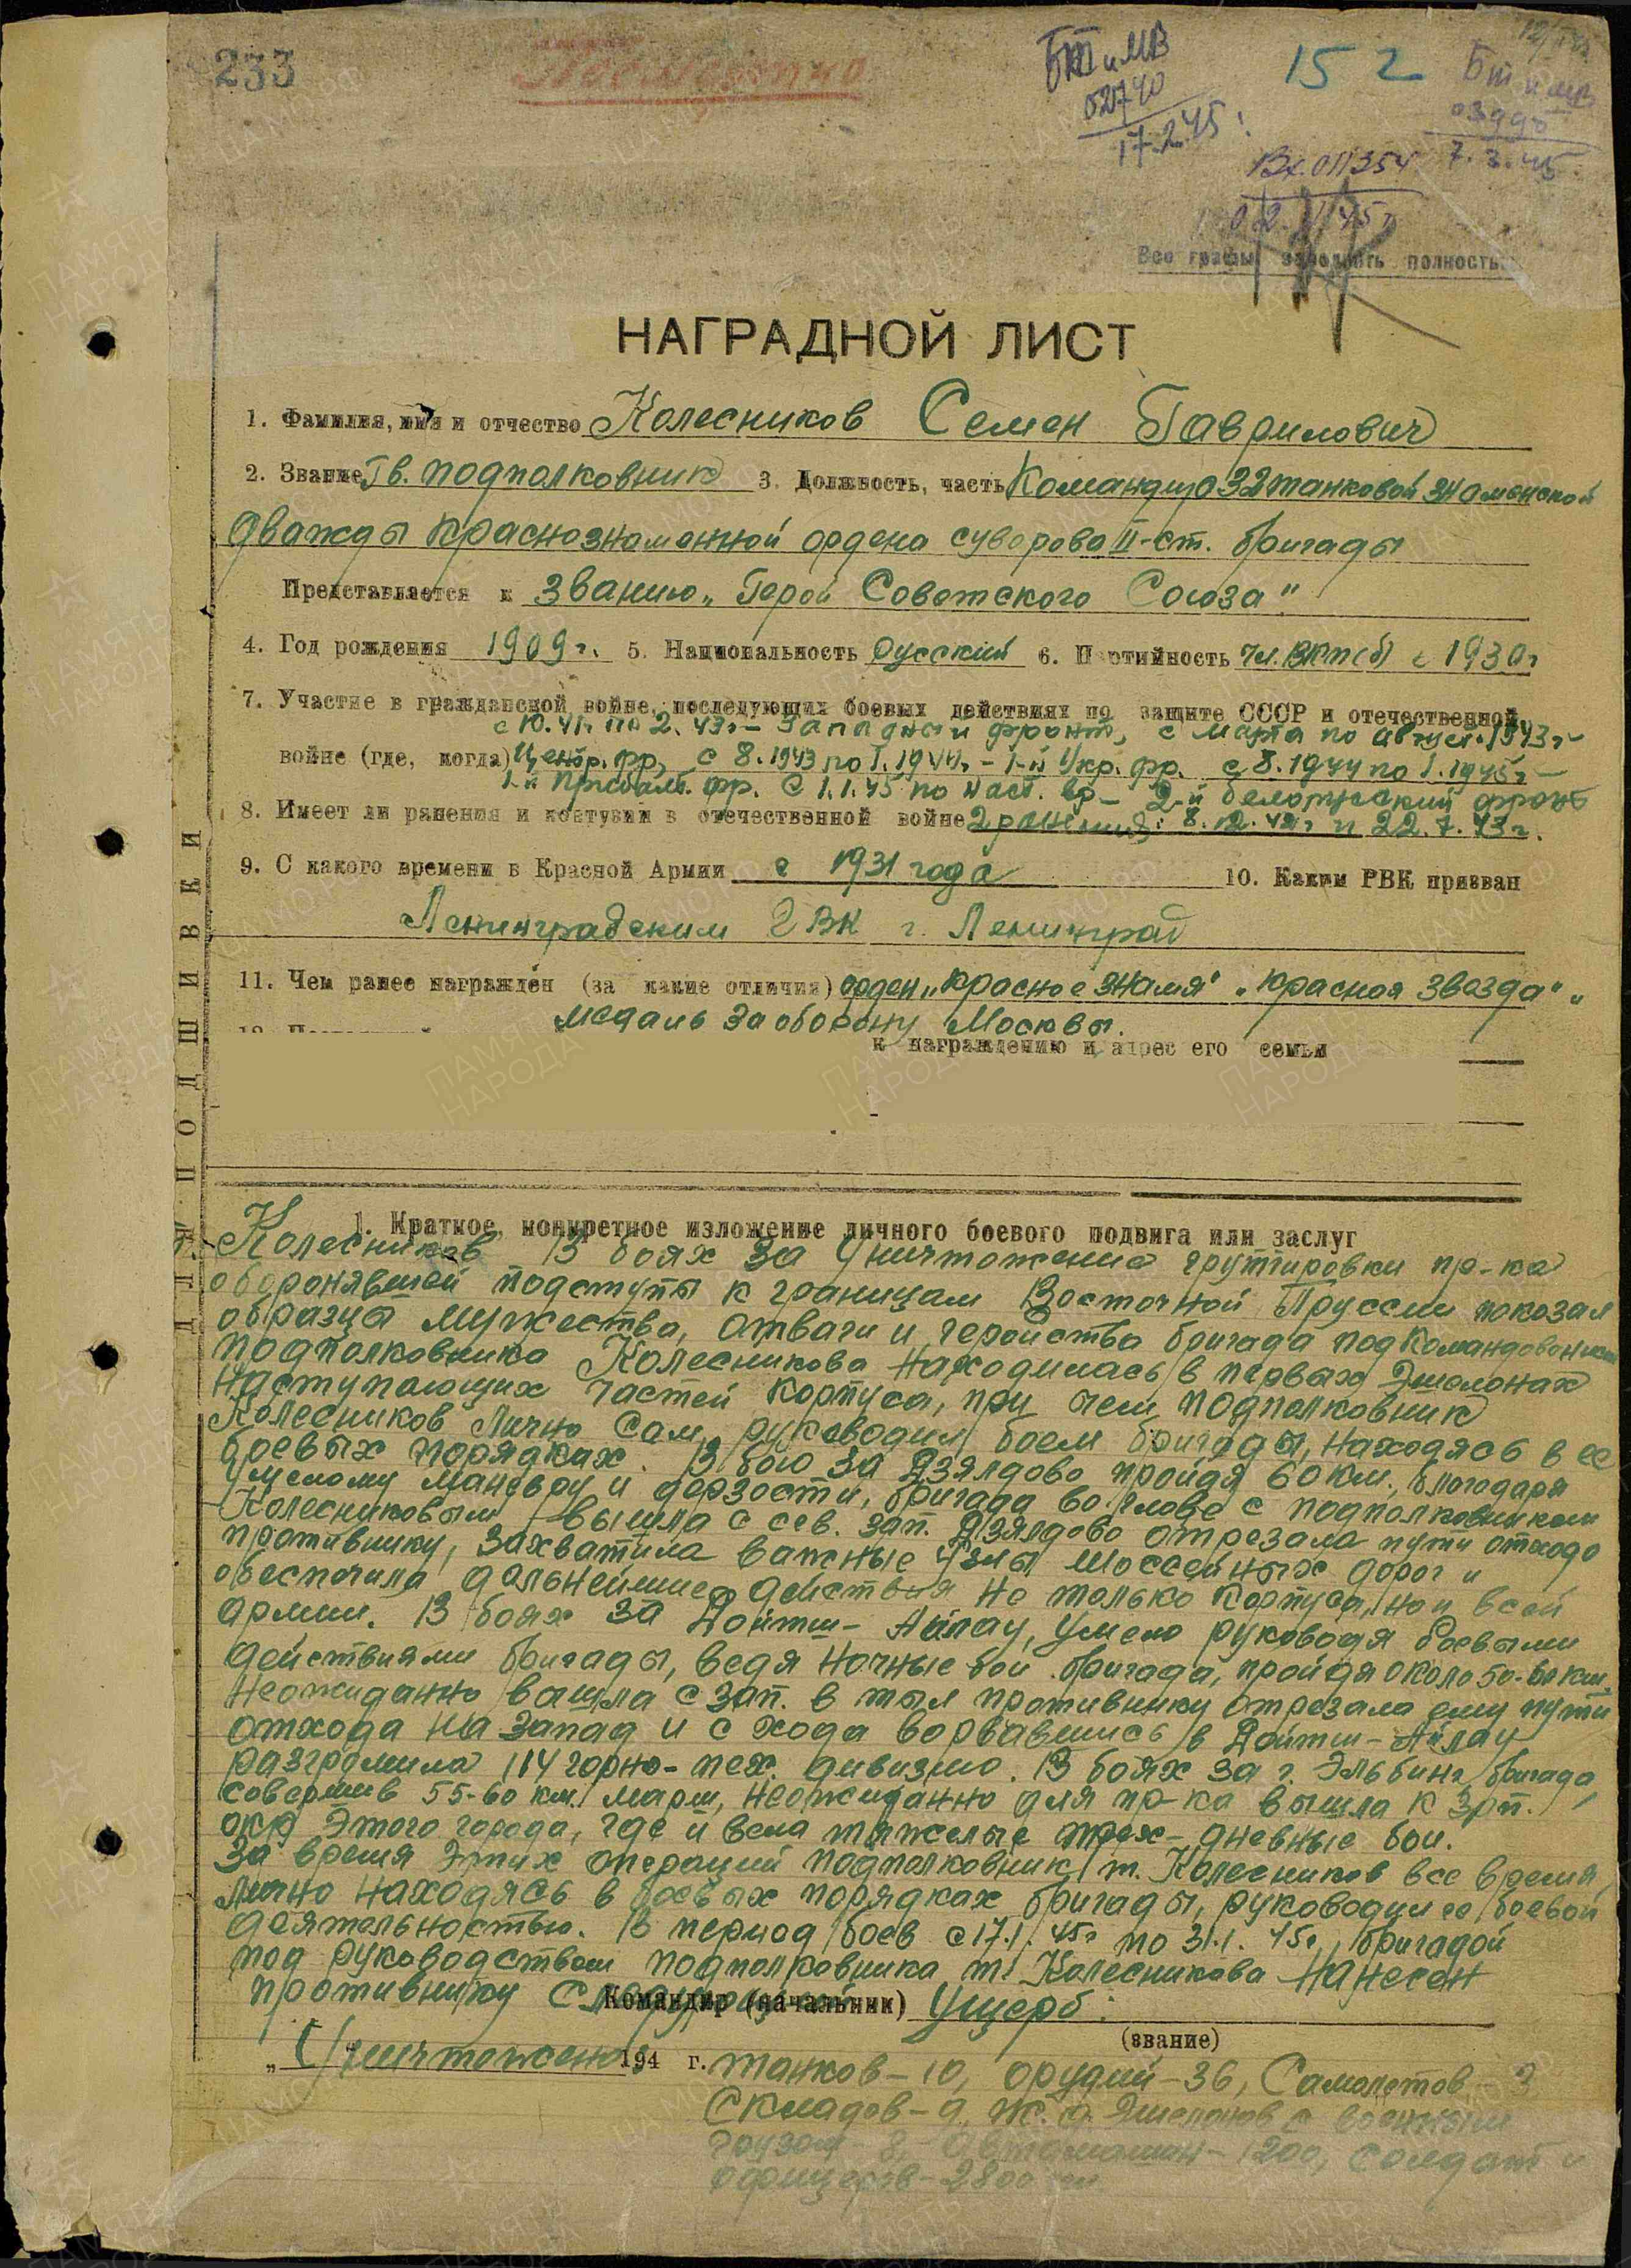 233
Посмертно
БТ и МВ
02740
17.2.45
152
БТ и МВ
7.3.45
Вх. 011354
Все графы заполнять полностью
НАГРАДНОЙ ЛИСТ
1. Фамилия, имя и отчество Колесников Семен Гаврилович
2. Звание Гв. подполковник 3. Должность, часть Командир 32 танковой Знаменской
дважды краснознаменной ордена суворова II-ст. бригады
Представляется к званию „Герой Советского Союза"
4. Год рождения 1909 г. 5. Национальность русский 6. Партийность чл. ВКП(б) с 1930 г
7. Участие в гражданской войне, последующих боевых действиях по защите СССР и отечественной
с 10.41г. по 2.43г – Западный фронт, с марта по август 1943 г –
войне (где, когда) Центр. фр, с 8.1943 по 1.1944г – 1-й Укр. фр. с 8.1944 по 1.1945г –
1-й Прибалт. фр. С 1.1.45 по наст. вр – 2-й белорусский фронт
8. Имеет ли ранения и контузии в отечественной войне 2 ранения: 8.12.42г и 22.7.43г.
9. С какого времени в Красной Армии с 1931 года 10. Каким РВК призван
Ленинградским ГВК г. Ленинград
11. Чем ранее награжден (за какие отличия) орден „Красное Знамя" „Красная Звезда"
медаль За оборону Москвы.
к награждению и адрес его семьи
ДЛЯ ПОДШИВКИ
1. Краткое, конкретное изложение личного боевого подвига или заслуг
Колесников В боях за уничтожение группировки пр-ка
оборонявшей подступы к границам Восточной Пруссии показал
образцы мужества, отваги и геройства бригада под командованием
подполковника Колесникова находилась в первых эшелонах
наступающих частей корпуса, при чем подполковник
Колесников лично сам руководил боем бригады, находясь в ее
боевых порядках. В бою за Дзялдово пройдя 60 км. благодаря
умелому маневру и дерзости, бригада во главе с подполковником
Колесниковым вышла с сев. зап. Дзялдово отрезала пути отхода
противнику, захватила важные узлы шоссейных дорог и
обеспечила дальнейшие действия не только корпуса, но и всей
армии. В боях за Дойтш-Айлау, умело руководя боевыми
действиями бригады, ведя ночные бои бригада, пройдя около 50-60 км.
неожиданно вышла с зап. в тыл противнику отрезала ему пути
отхода на запад и с хода ворвавшись в Дойтш-Айлау
разгромила 114 горно-пех. дивизию. В боях за г. Эльбинг бригада,
совершив 55-60 км. марш, неожиданно для пр-ка вышла к зап.
окр этого города, где и вела тяжелые трех-дневные бои.
За время этих операций подполковник т. Колесников все время,
лично находясь в боевых порядках бригады, руководил ее боевой
деятельностью. В период боев с 17.1.45г по 31.1.45г, бригадой
под руководством подполковника т. Колесникова нанесен
противнику Командир (начальник) ущерб:
(звание)
„Уничтожено 194 г. танков – 10, орудий – 36, Самолетов – 3
Складов – 9, ж.д. эшелонов с военным
грузом – 8, автомашин – 1200, солдат и
офицеров – 2800